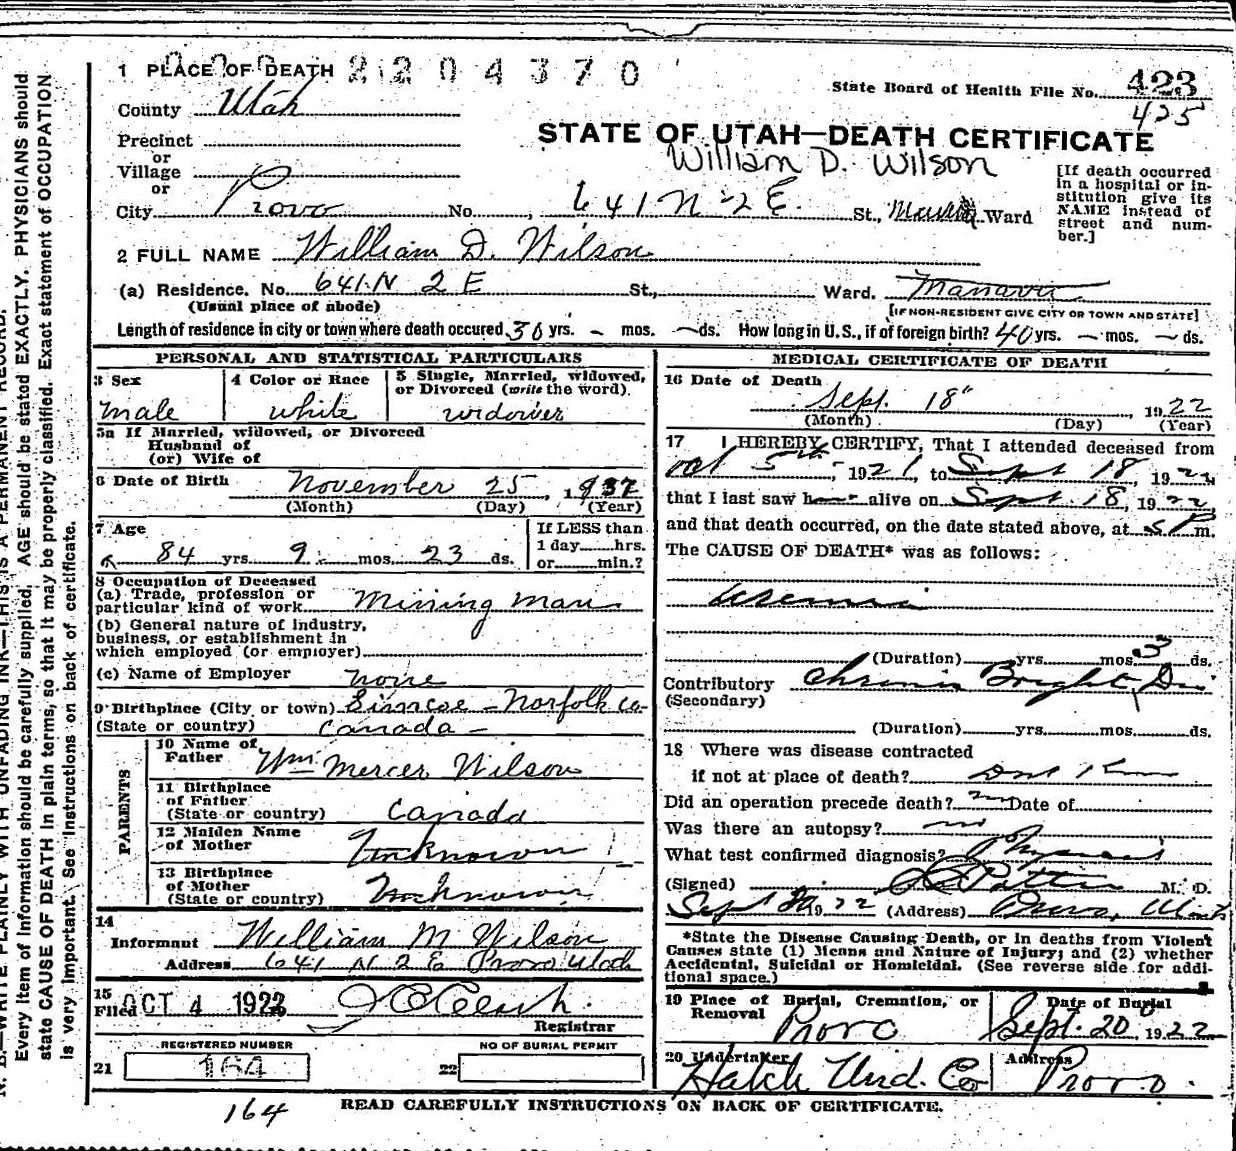 1 PLACE OF DEATH 2204370
State Board of Health File No. 423
425
County Utah
STATE OF UTAH—DEATH CERTIFICATE
Precinct
or
Village
or
William D. Wilson
[If death occurred in a hospital or institution give its NAME instead of street and number.]
City Provo No. 641 N 2 E. St., Ward
2 FULL NAME William D. Wilson
(a) Residence. No. 641 N 2 E St., Ward. Manavu
(Usual place of abode)
[IF NON-RESIDENT GIVE CITY OR TOWN AND STATE]
Length of residence in city or town where death occured 30 yrs. – mos. – ds. How long in U.S., if of foreign birth? 40 yrs. – mos. – ds.
PERSONAL AND STATISTICAL PARTICULARS
3 Sex
male
4 Color or Race
white
5 Single, Married, widowed, or Divorced (write the word).
widower
5a If Married, widowed, or Divorced
Husband of
(or) Wife of
6 Date of Birth November 25, 1837
(Month) (Day) (Year)
7 Age
84 yrs. 9 mos. 23 ds.
If LESS than
1 day......hrs.
or......min.?
8 Occupation of Deceased
(a) Trade, profession or
particular kind of work Mining man
(b) General nature of industry,
business, or establishment in
which employed (or employer)
(c) Name of Employer none
9 Birthplace (City or town) Simcoe – Norfolk co–
(State or country) Canada –
PARENTS
10 Name of
Father Wm. Mercer Wilson
11 Birthplace
of Father
(State or country) Canada
12 Maiden Name
of Mother Unknown
13 Birthplace
of Mother
(State or country) Unknown
14
Informant William M Wilson
Address 641 N 2 E Provo Utah
15
Filed OCT 4 1922
Registrar
REGISTERED NUMBER
21 164
NO OF BURIAL PERMIT
22
164
MEDICAL CERTIFICATE OF DEATH
16 Date of Death
Sept. 18", 1922
(Month) (Day) (Year)
17 I HEREBY CERTIFY, That I attended deceased from
Oct 5th, 1921, to Sept 18, 1922,
that I last saw h alive on Sept. 18, 1922,
and that death occurred, on the date stated above, at 5 P m.
The CAUSE OF DEATH* was as follows:
Uremia
(Duration) yrs. mos. 3 ds.
Contributory Chronic Bright Dis
(Secondary)
(Duration) yrs. mos. ds.
18 Where was disease contracted
if not at place of death? Dont Know
Did an operation precede death? no Date of
Was there an autopsy? no
What test confirmed diagnosis? Physical
(Signed) M. D.
Sept 20 1922 (Address) Provo, Utah
*State the Disease Causing Death, or in deaths from Violent
Causes state (1) Means and Nature of Injury; and (2) whether
Accidental, Suicidal or Homicidal. (See reverse side for addi-
tional space.)
19 Place of Burial, Cremation, or
Removal
Provo
Date of Burial
Sept. 20, 1922
20 Undertaker
Hatch Und. Co
Address
Provo.
READ CAREFULLY INSTRUCTIONS ON BACK OF CERTIFICATE.
N. B.—WRITE PLAINLY WITH UNFADING INK—THIS IS A PERMANENT RECORD.
Every item of information should be carefully supplied. AGE should be stated EXACTLY. PHYSICIANS should
state CAUSE OF DEATH in plain terms, so that it may be properly classified. Exact statement of OCCUPATION
is very important. See Instructions on back of certificate.